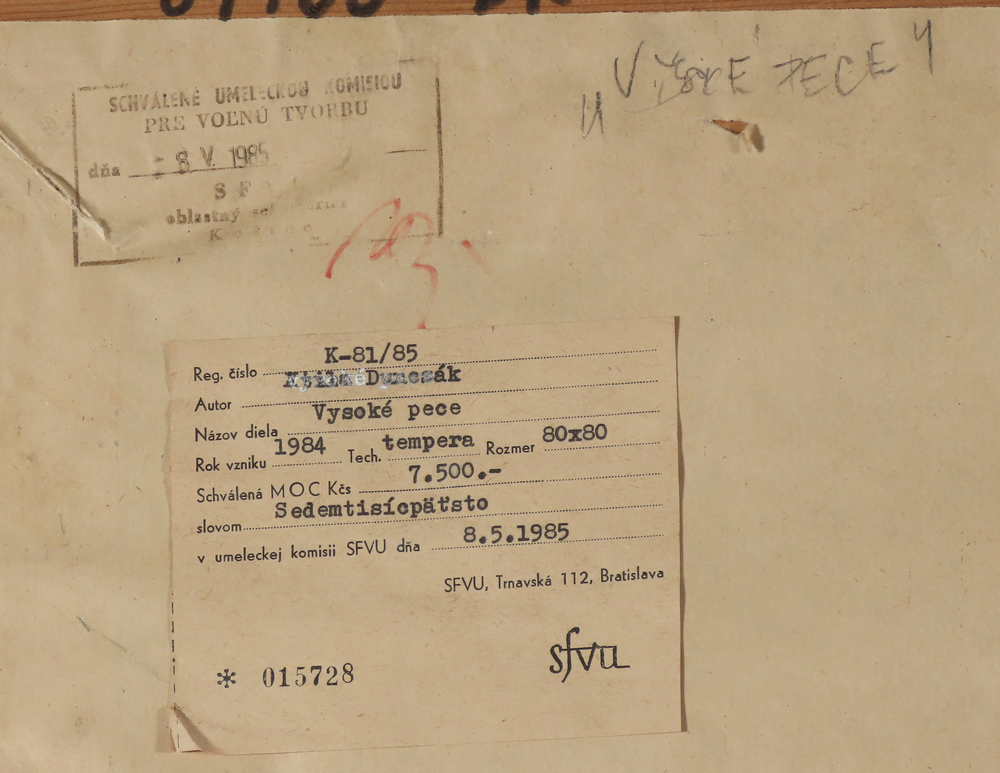 „VYSOKÉ PECE"
SCHVÁLENÉ UMELECKOU KOMISIOU
PRE VOĽNÚ TVORBU
dňa 8 V. 1985
S F
oblastný
K-81/85
Reg. číslo
Duncsák
Autor
Vysoké pece
Názov diela
Rok vzniku 1984 Tech. tempera Rozmer 80x80
Schválená MOC Kčs 7.500.-
slovom Sedemtisícpäťsto
v umeleckej komisii SFVU dňa 8.5.1985
SFVU, Trnavská 112, Bratislava
* 015728
sfvu